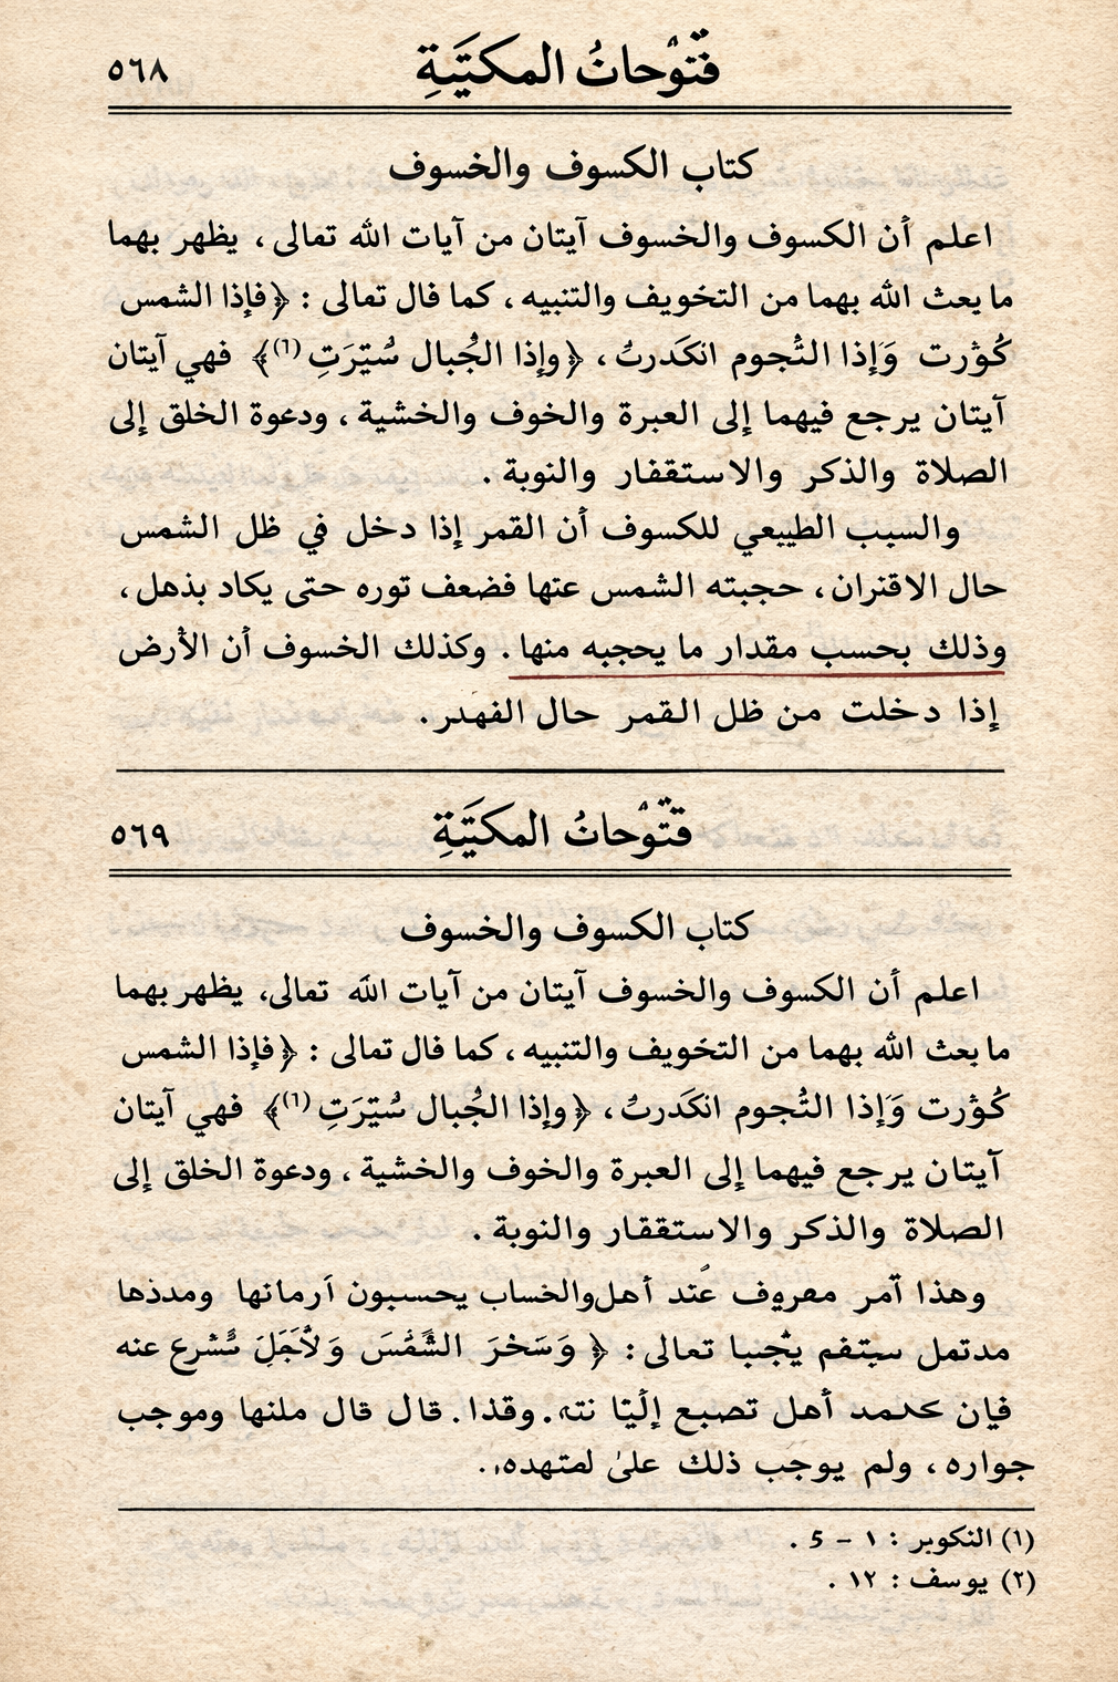 فتوحات المكتية
٥٦٨
كتاب الكسوف والخسوف
اعلم أن الكسوف والخسوف آيتان من آيات الله تعالى ، يظهر بهما
ما يعث الله بهما من التخويف والتنبيه ، كما قال تعالى : ﴿فإذا الشمس
كُوْرت وَإذا التُجوم انكَدرتُ ، ﴿وإذا الجُبال سُتِرَتِ (٦)﴾ فهي آيتان
آيتان يرجع فيهما إلى العبرة والخوف والخشية ، ودعوة الخلق إلى
الصلاة والذكر والاستقفار والنوبة .
والسبب الطبيعي للكسوف أن القمر إذا دخل في ظل الشمس
حال الاقتران ، حجبته الشمس عنها فضعف توره حتى يكاد بذهل ،
وذلك بحسب مقدار ما يحجبه منها . وكذلك الخسوف أن الأرض
إذا دخلت من ظل القمر حال .
فتوحات المكتية
٥٦٩
كتاب الكسوف والخسوف
اعلم أن الكسوف والخسوف آيتان من آيات الله تعالى، يظهر بهما
ما بعث الله بهما من التخويف والتنبيه ، كما قال تعالى : ﴿فإذا الشمس
كُوْرت وَإذا التُجوم انكَدرتُ ، ﴿وإذا الجُبال سُتِرَتِ (٦)﴾ فهي آيتان
آيتان يرجع فيهما إلى العبرة والخوف والخشية ، ودعوة الخلق إلى
الصلاة والذكر والاستققار والنوبة .
وهذا آمر معروف عند أهل والخساب يحسبون أرمانها ومدذها
مدتمل تعالى : ﴿ وَسَخْرَ عنه
فإن أهل تصبع . وقذا . قال قال ملنها وموجب
جواره ، ولم يوجب ذلك على .
(١) النكوير : ١ – 5 .
(٢) يوسف : ١٢ .